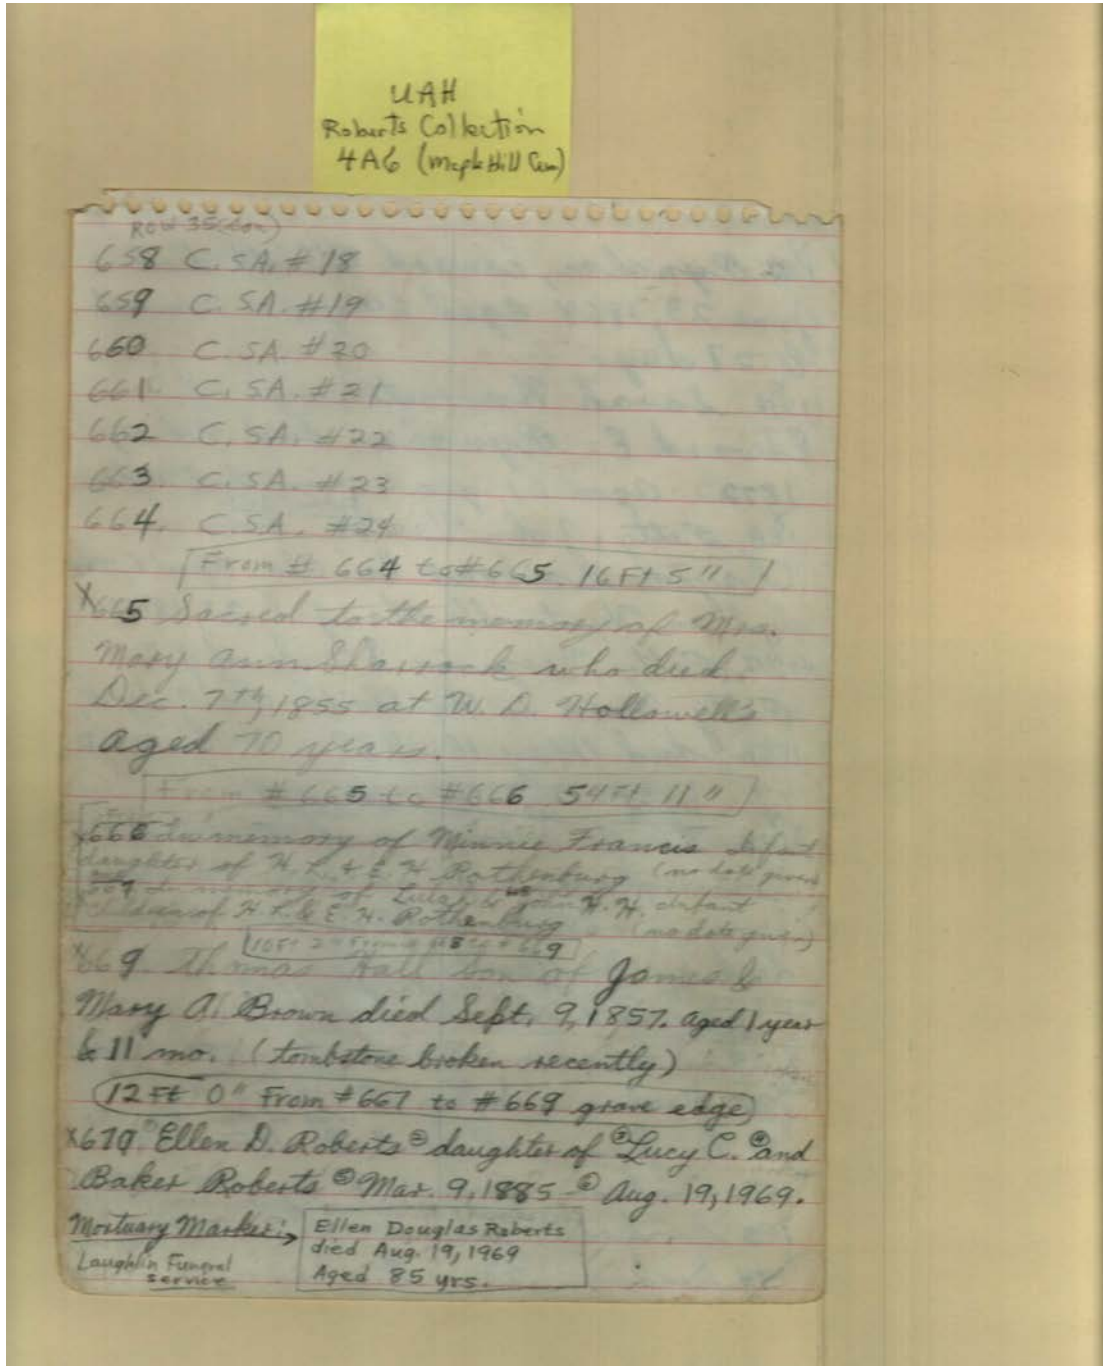 UAH
Roberts Collection
4A6 (Maple Hill Cem)
ROW 35 (con)
658 C.SA. #18
659 C.SA. #19
660 C.SA. #20
661 C.SA. #21
662 C.SA. #22
663 C.SA. #23
664. C.SA. #24
From # 664 to #665 16 Ft 5"
X665 Sacred to the memory of Mrs.
Mary Ann Sharrock who died
Dec. 7th, 1855 at W. D. Hollowell's
aged 70 years.
From # 665 to #666 54 Ft 11"
X666 In memory of Minnie Francis Infant
daughter of H. L. & E. H. Rothenburg (no date given)
In memory of John H. H. infant
children of H. L. & E. H. Rothenburg (no date given)
10 Ft 2" From to #669
X669. Thomas Hall Son of James &
Mary A. Brown died Sept. 9, 1857. aged 1 year
& 11 mo. (tombstone broken recently)
12 Ft 0" From #667 to #669 grave edge
X670 Ellen D. Roberts ② daughter of ③ Lucy C. ④ and
Baker Roberts ⑤ Mar. 9, 1885 - ⑥ Aug. 19, 1969.
Mortuary Marker:
Laughlin Funeral
service
Ellen Douglas Roberts
died Aug. 19, 1969
Aged 85 yrs.